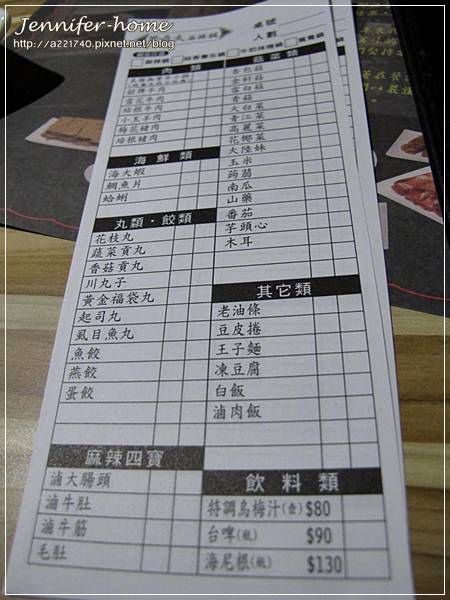 Jennifer-home
http://a221740.pixnet.net/blog
桌號
人數
肉類
雪花牛肉
培根牛肉
小羔羊肉
梅花豬肉
培根豬肉
海鮮類
海大蝦
鯛魚片
蛤蜊
丸類·餃類
花枝丸
蔬菜貢丸
香菇貢丸
川丸子
黃金福袋丸
起司丸
虱目魚丸
魚餃
燕餃
蛋餃
麻辣四寶
滷大腸頭
滷牛肚
滷牛筋
毛肚
菇菜類
杏包菇
金針菇
雪白菇
香菇
大白菜
青江菜
高麗菜
花椰菜
大陸妹
玉米
蒟蒻
南瓜
山藥
番茄
芋頭心
木耳
其它類
老油條
豆皮捲
王子麵
凍豆腐
白飯
滷肉飯
飲料類
特調烏梅汁(壺) $80
台啤(瓶) $90
海尼根(瓶) $130